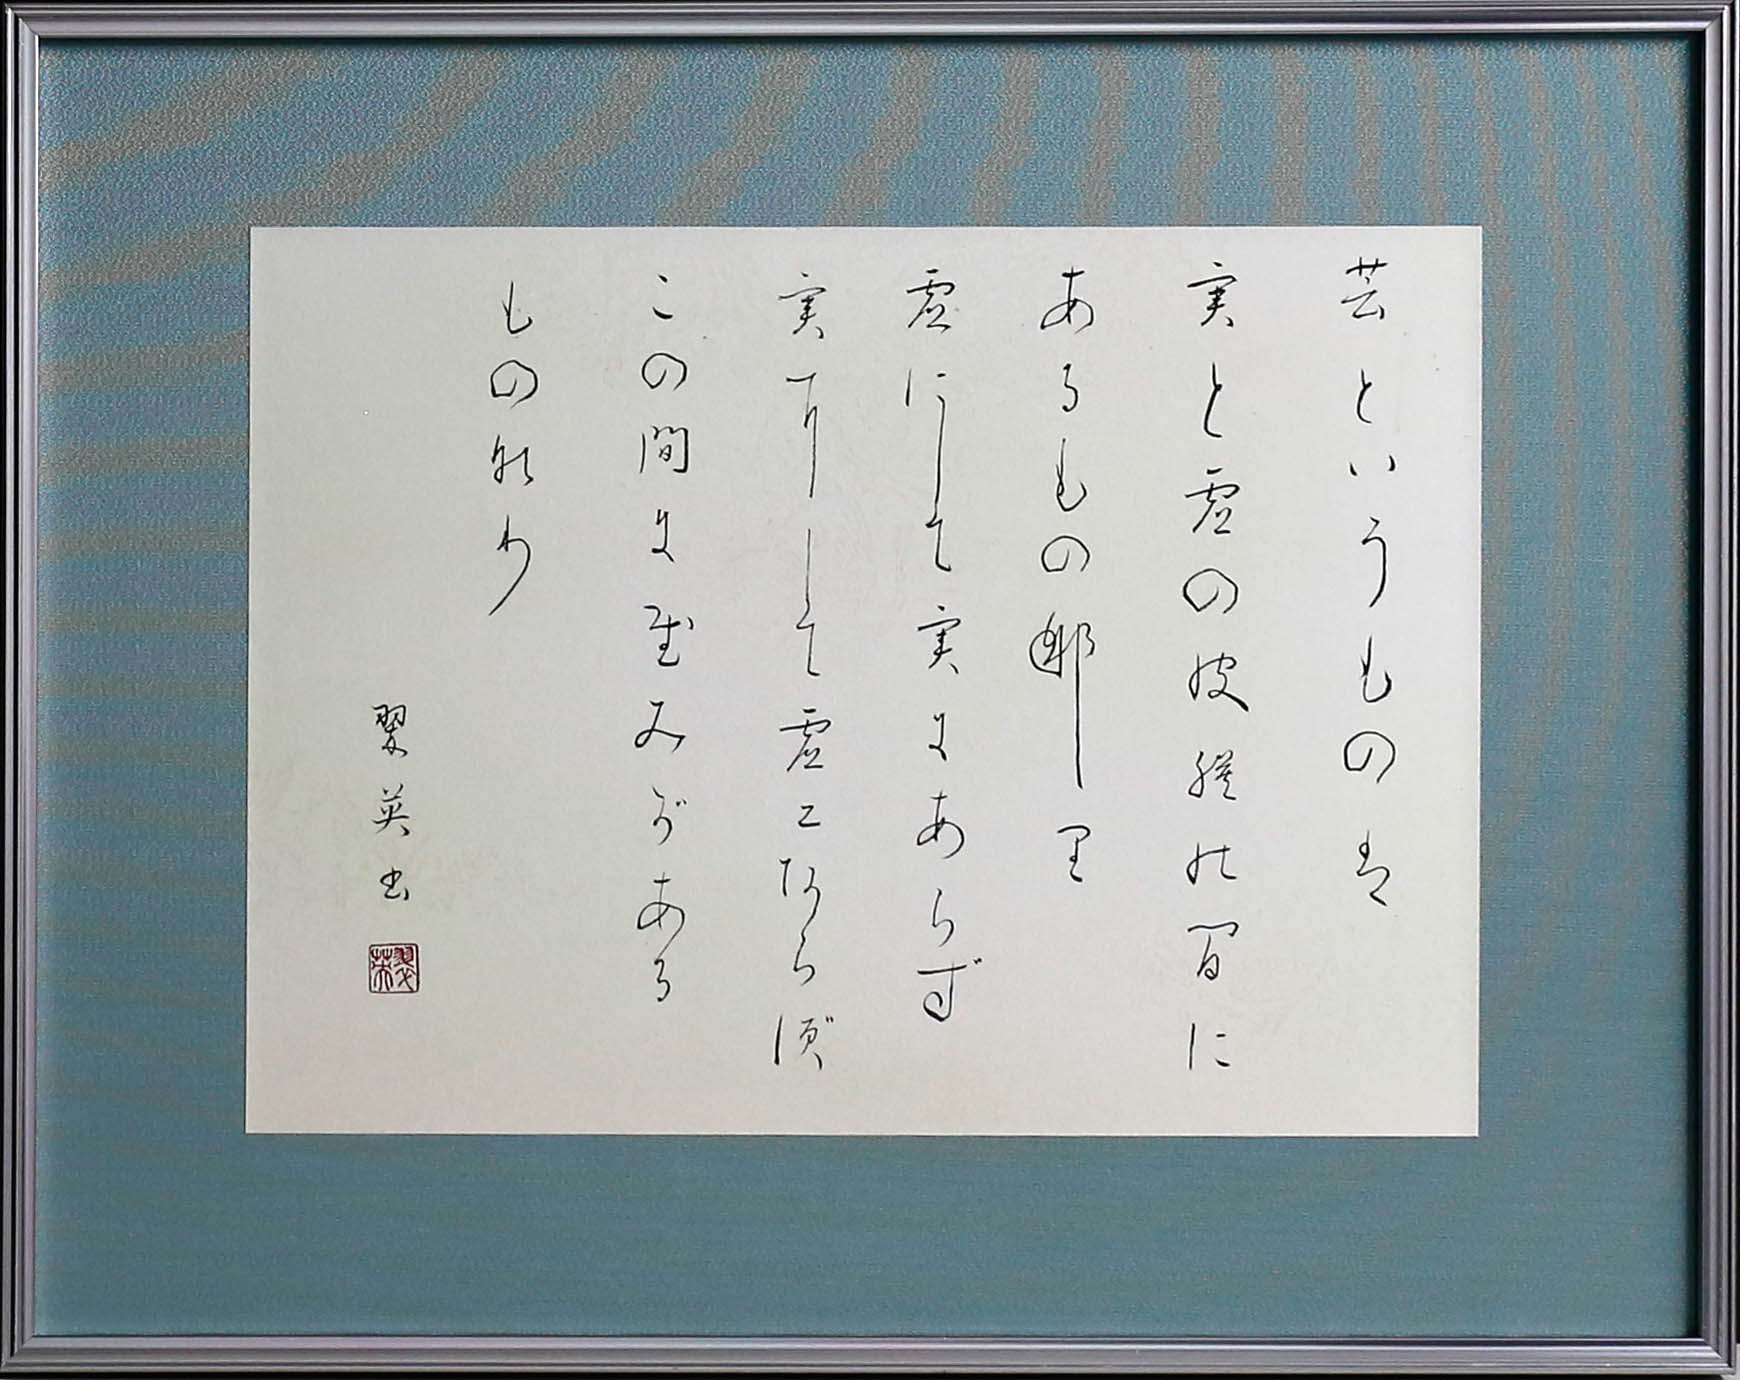 芸というものは
実と虚の皮膜の間に
あるものなり
虚にして実にあらず
実にして虚にあらず
この間に慰みがある
ものなり
翠英書